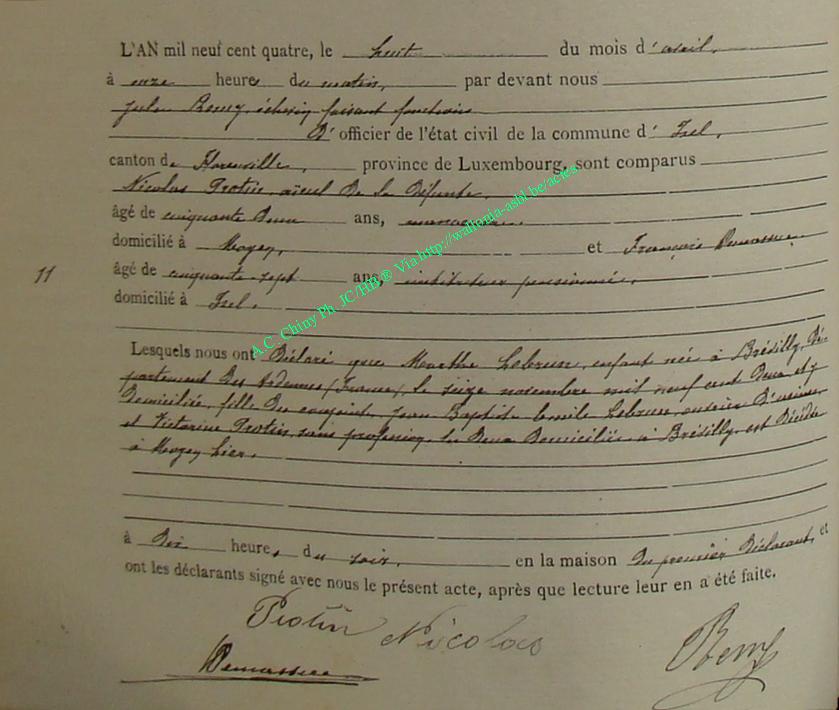 L'AN mil neuf cent quatre, le huit du mois d'avril,
à onze heures du matin, par devant nous
Jules Remy, échevin faisant fonctions
d'officier de l'état civil de la commune d'Izel,
canton de Florenville, province de Luxembourg, sont comparus
Nicolas Protin, aïeul de la défunte,
âgé de cinquante deux ans,
domicilié à Moyen, et François
11
âgé de cinquante-sept ans, instituteur pensionné,
domicilié à Izel.
Lesquels nous ont déclaré que Marthe Lebrun, enfant née à Brévilly, Dé-
partement des Ardennes (France), le seize novembre mil neuf cent deux et y
domiciliée, fille des conjoints Jean Baptiste Emile Lebrun, ouvrier d'usine,
et Victorine Protin, sans profession, les deux domiciliés à Brévilly est décédée
à Moyen hier.
à dix heures du soir, en la maison du premier déclarant, et
ont les déclarants signé avec nous le présent acte, après que lecture leur en a été faite.
Protin Nicolas
Remy
A.C. Chiny Ph. JC/HB ® Via http://wallonia-asbl.be/actes